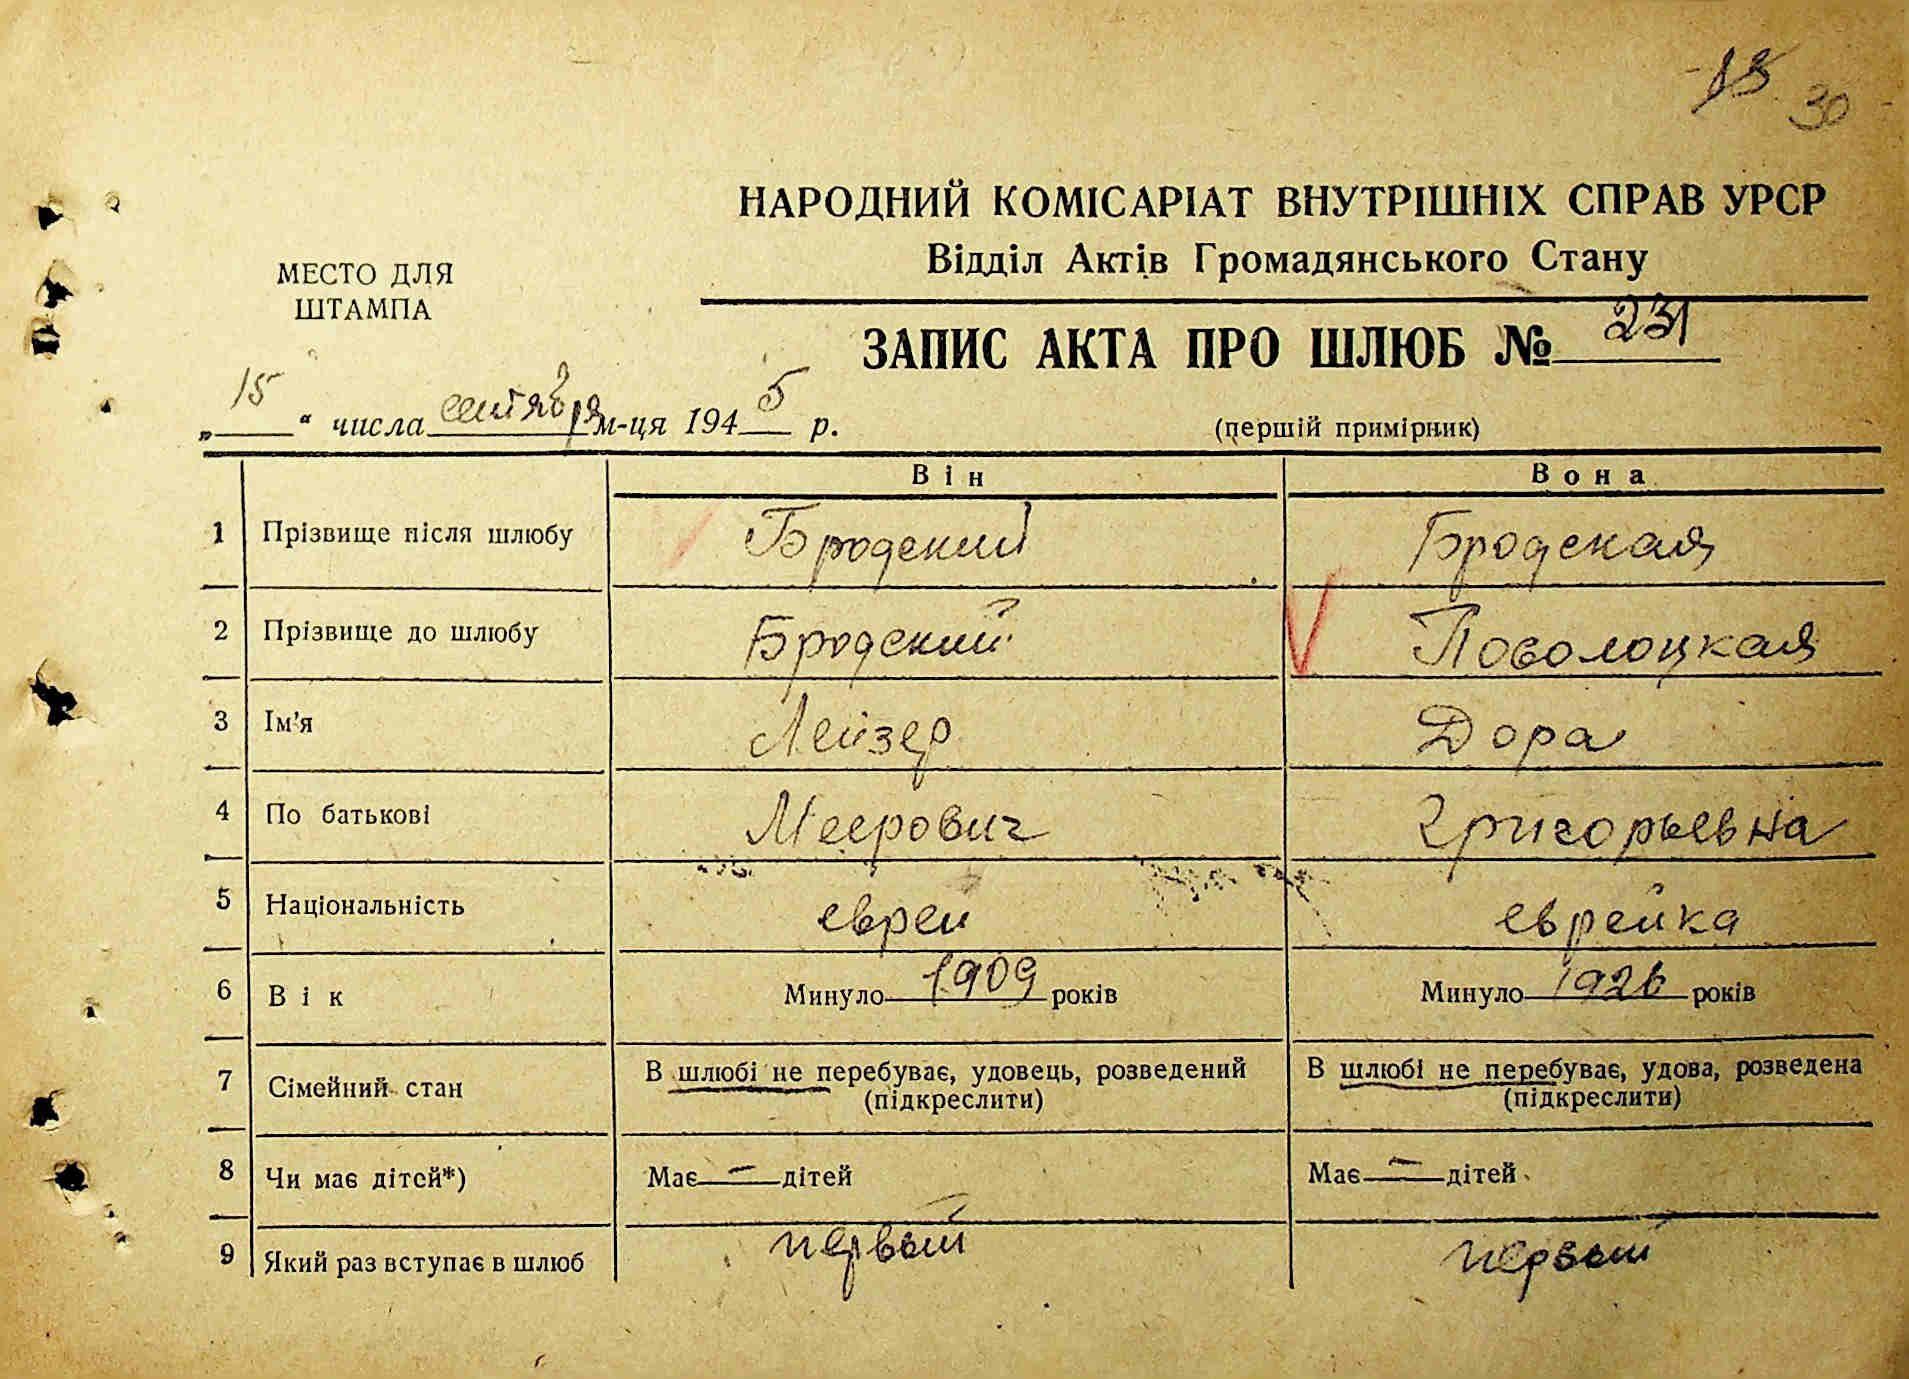 30
НАРОДНИЙ КОМІСАРІАТ ВНУТРІШНІХ СПРАВ УРСР
Відділ Актів Громадянського Стану
МЕСТО ДЛЯ
ШТАМПА
ЗАПИС АКТА ПРО ШЛЮБ № 231
„ 15 “ числа сентября м-ця 1945 р.
(перший примірник)
Він Вона
1 Прізвище після шлюбу Бродский Бродская
2 Прізвище до шлюбу Бродский Поволоцкая
3 Ім'я Лейзер Дора
4 По батькові Меерович Григорьевна
5 Національність еврей еврейка
6 Вік Минуло 1909 років Минуло 1926 років
7 Сімейний стан В шлюбі не перебуває, удовець, розведений (підкреслити) В шлюбі не перебуває, удова, розведена (підкреслити)
8 Чи має дітей*) Має — дітей Має — дітей
9 Який раз вступає в шлюб первый первый